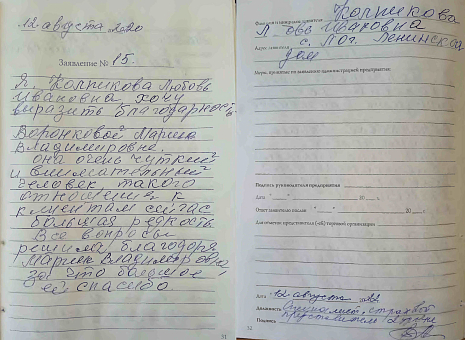 12 августа 2020
Заявление № 15.
Я Колпикова Любовь
Ивановна хочу
выразить благодарность
Воронковой Марине
Владимировне.
она очень чуткий
и внимательный
человек такого
отношения к
клиентам сейчас
большая редкость
Все вопросы
решили благодоря
Марине Владимировне
за это большое
ей спасибо.
31
Фамилия, имя, отчество заявителя Колпикова
Любовь Ивановна
Адрес заявителя с. Лог. Ленинская
дом
Меры, принятые по заявлению администрацией предприятия:
Подпись руководителя предприятия
Дата " " 20
Ответ заявителю послан " " 20
Дата 12 августа
Должность Специалист, страховой
представитель 2 уровня
Подпись
32